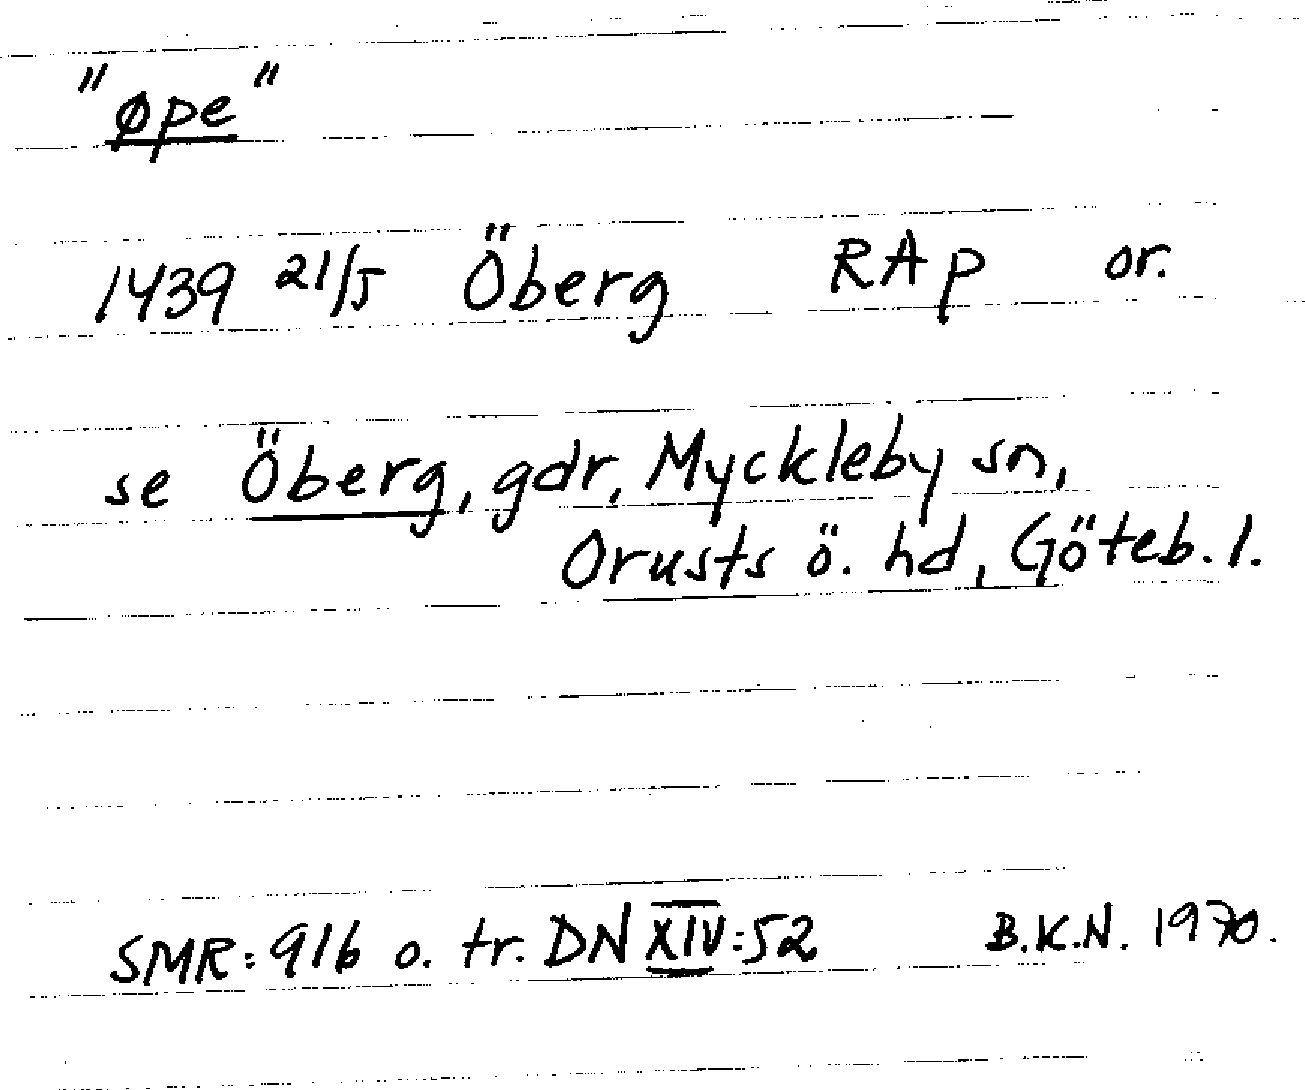 "øpe"
1439 21/5 Öberg RAp or.
se Öberg, gdr, Myckleby sn,
Orusts ö. hd, Göteb. l.
SMR: 916 o. tr. DN XIV:52 B.K.N. 1970.